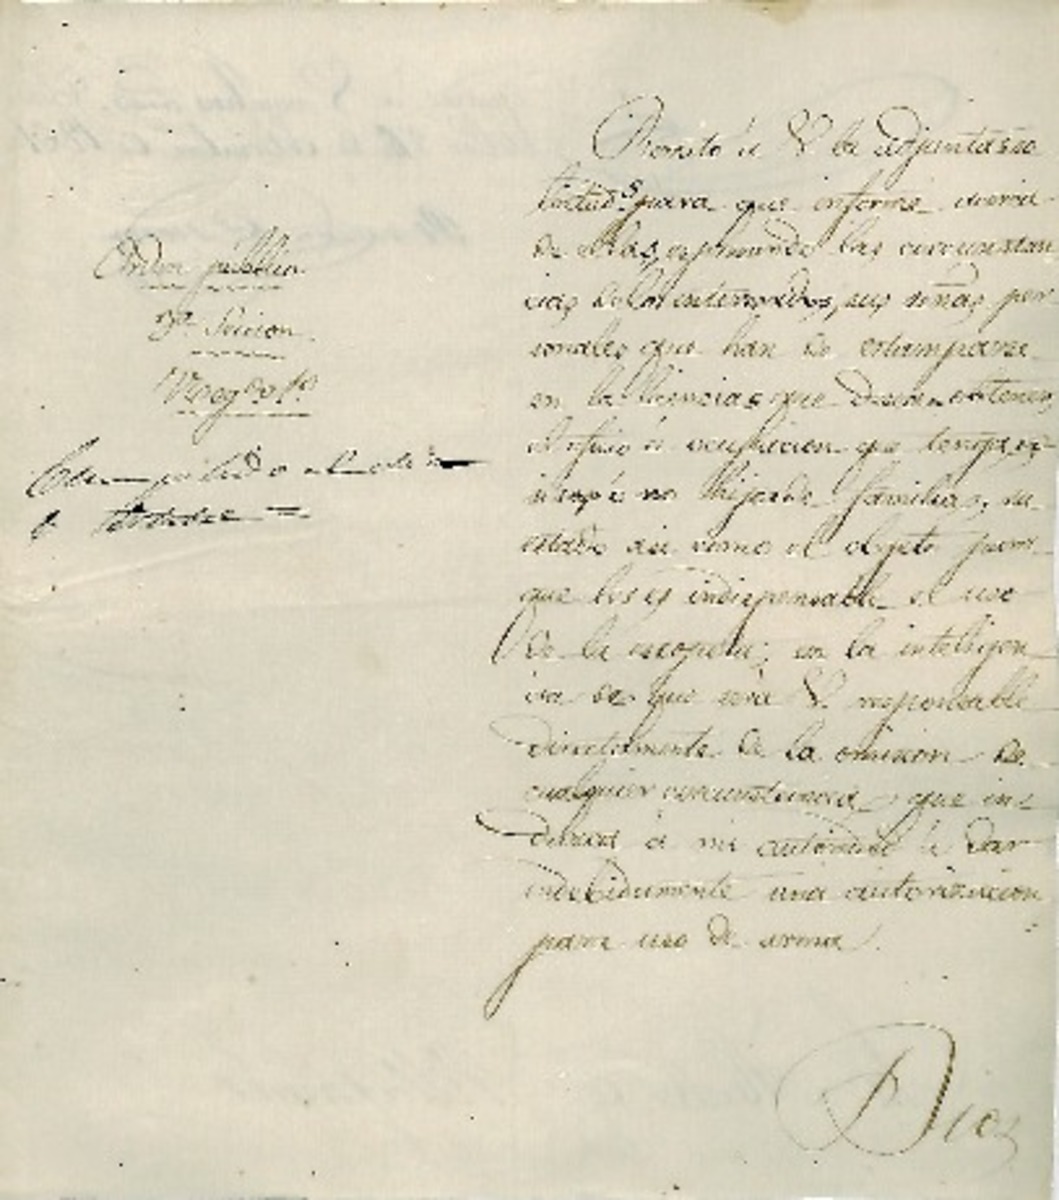 Orden público
3ª Seccion
Neg.do 1º
Cumplido el dia
Remito á V. las adjuntas so
licitud.s para que informe acerca
de ellas, espresando las circunstan
cias de los interesados, sus señas per
sonales que han de estamparse
en las licencias que desean obtener,
el oficio ú ocupacion que tengan,
si es ó no hijo de familia, su
estado asi como el objeto para
que les es indispensable el uso
de la escopeta; en la inteligen
cia de que será V. responsable
directamente de la omision de
cualquier circunstancia, que in-
duzca á mi autoridad á dar
indebidamente una autorizacion
para uso de arma.
Dios